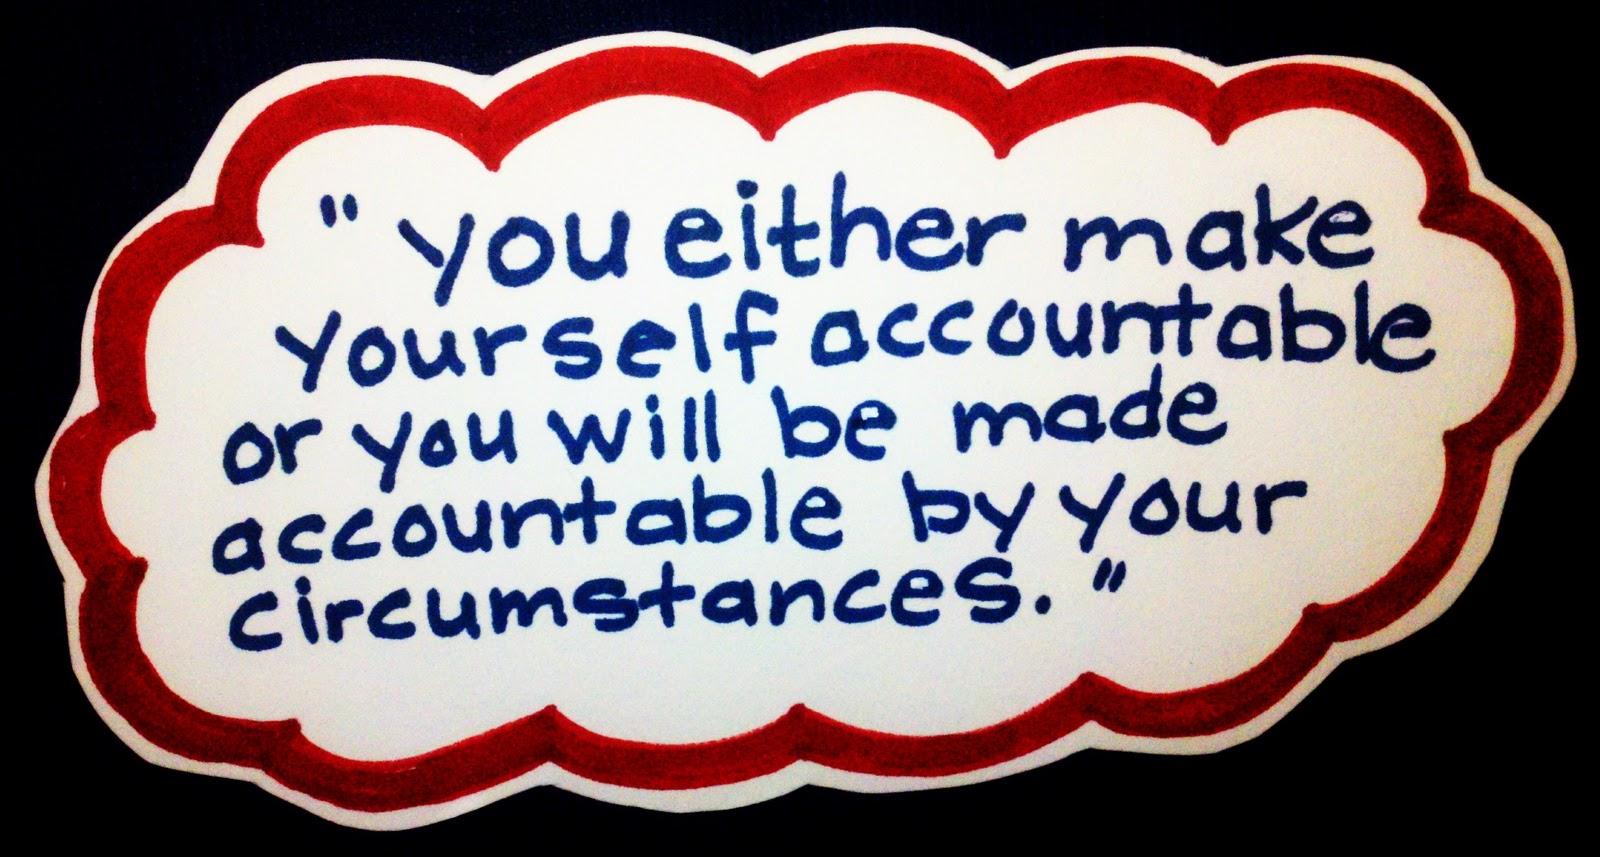 "you either make
yourself accountable
or you will be made
accountable by your
circumstances."